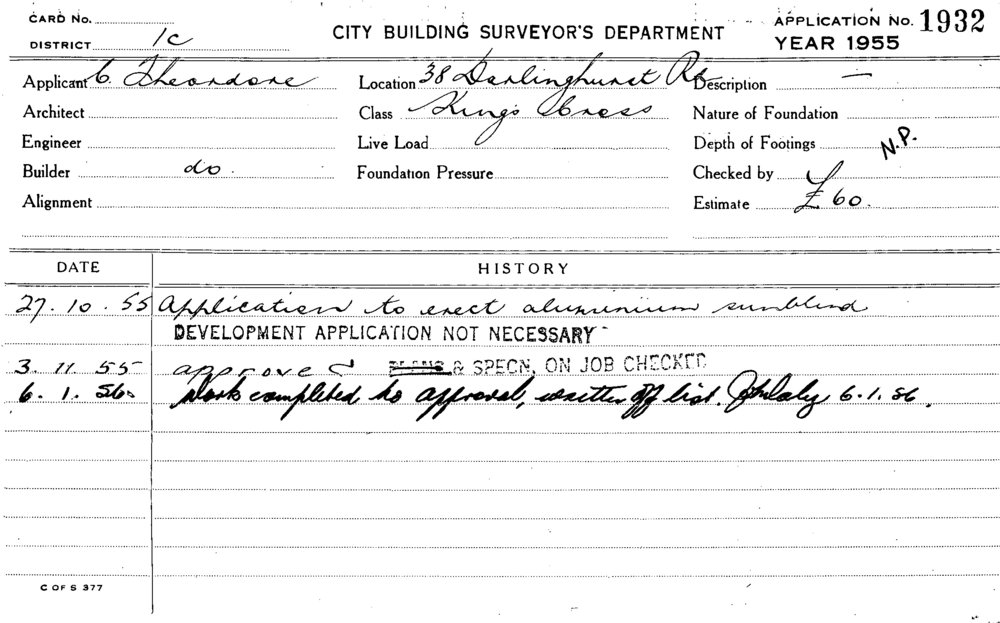 CARD No.
DISTRICT 1C
CITY BUILDING SURVEYOR'S DEPARTMENT
APPLICATION No. 1932
YEAR 1955
Applicant C. Theordore Location 38 Darlinghurst Rd Description —
Architect Class Kings Cross Nature of Foundation
Engineer Live Load Depth of Footings N.P.
Builder do. Foundation Pressure Checked by
Alignment Estimate £60.
DATE HISTORY
27.10.55 Application to erect aluminium sunblind
DEVELOPMENT APPLICATION NOT NECESSARY
3.11.55 approved PLANS & SPECN. ON JOB CHECKED
6.1.56. Work completed to approval, written off list. JMDaly 6.1.56.
C OF S 377